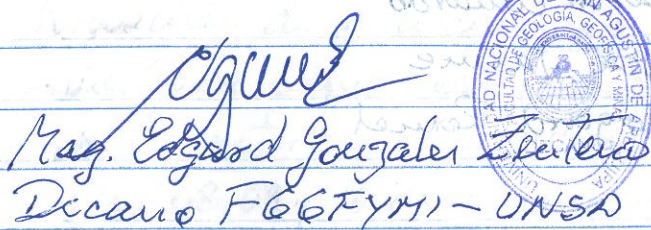 Mag. Edgard Gonzales Zenteno
Decano FGGFYMI - UNSA
NACIONAL DE SAN AGUSTIN DE AREQUIPA
FACULTAD DE GEOLOGIA, GEOFISICA Y MINAS